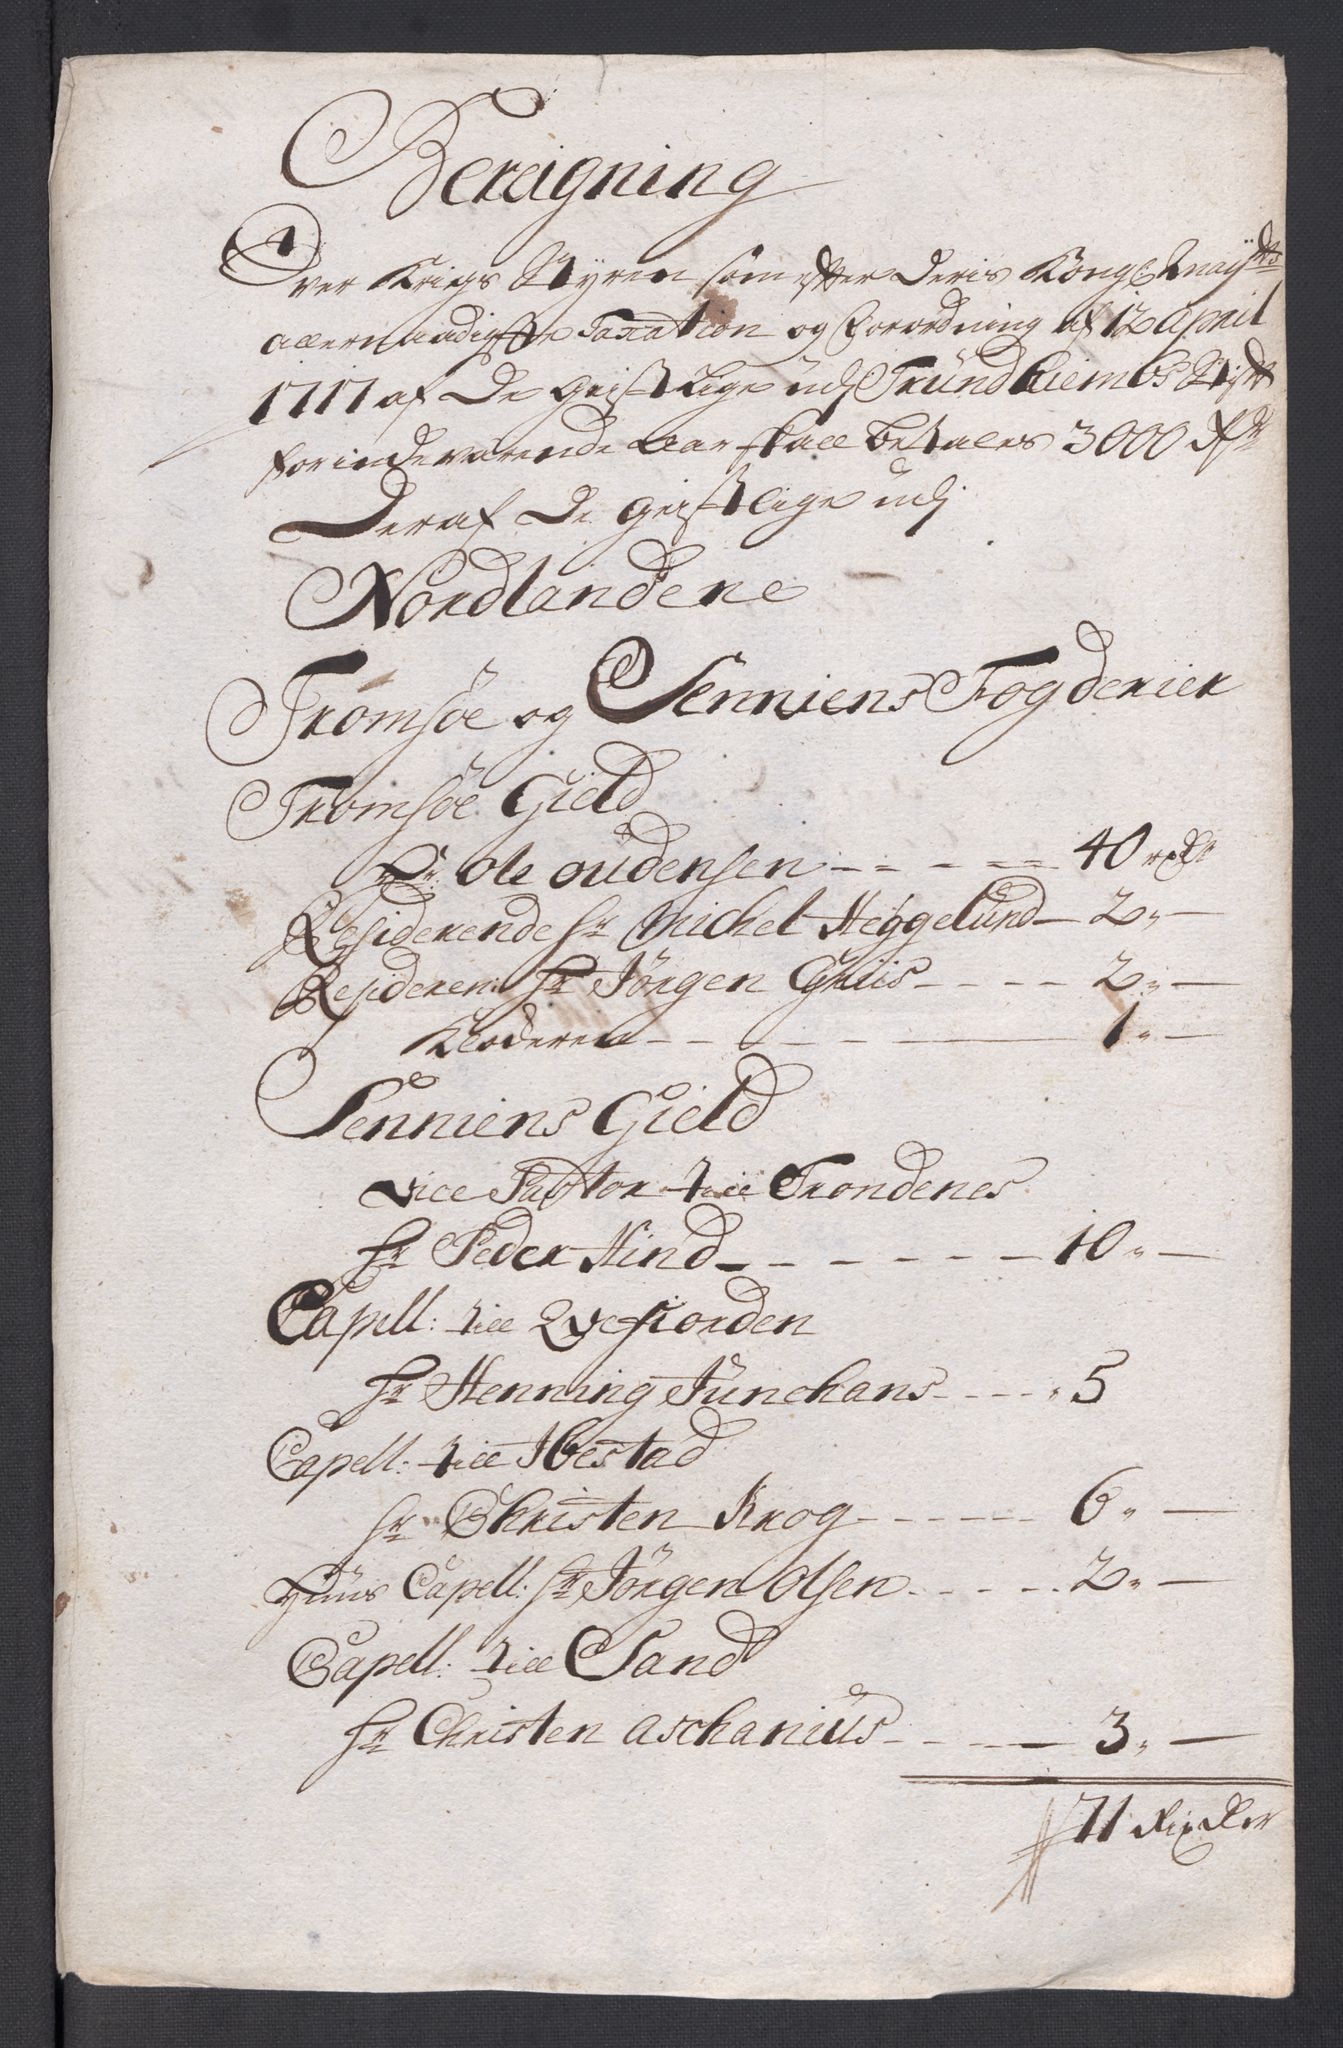 Bereigning
Over Krigs Styren som efter Deris Kongl. Mayts
allernaadigste Taxation og Forordning af 12 April
1717 af De Geistlige udj Trundhiembs Stift
for indeværende Aar skall betales 3000 Rdr
Deraf De Geistlige udj
Nordlandene
Tromsöe og Senniens Fogderier
Tromsöe Gield
Hr Ole Oudensen - - - - 40 rdr
Residerende Hr Michel Heggelund - 2 „ -
Resideren: Hr Jörgen Griis - - - - 2 „ -
Klockeren - - - - 1 „ -
Senniens Gield
Vice Pastor till Trondenes
Hr Peder Hind - - - - - - 10 „ -
Capell: till Qvefiorden
Hr Henning Junchans - - - „ 5
Capell: till Ibestad
Hr Christen Krog - - - - - 6 „ -
Huus Capell: Hr Jörgen Olsen - - - - 2 „ -
Capell: till Sand
Hr Christen Aschanius - - - - 3 „ -
71 Rixdlr